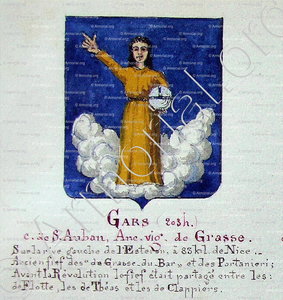 GARS (203h.
c. de S. Auban, Anc. vig.ie de Grasse.
Sur la rive gauche de l'Esteron, à 83 kil. de Nice.-
Ancien fief des de Grasse-du Bar, et des Portanieri;
Avant la Révolution le fief était partagé entre les:
de Flotte, les de Théas et les de Clappiers.